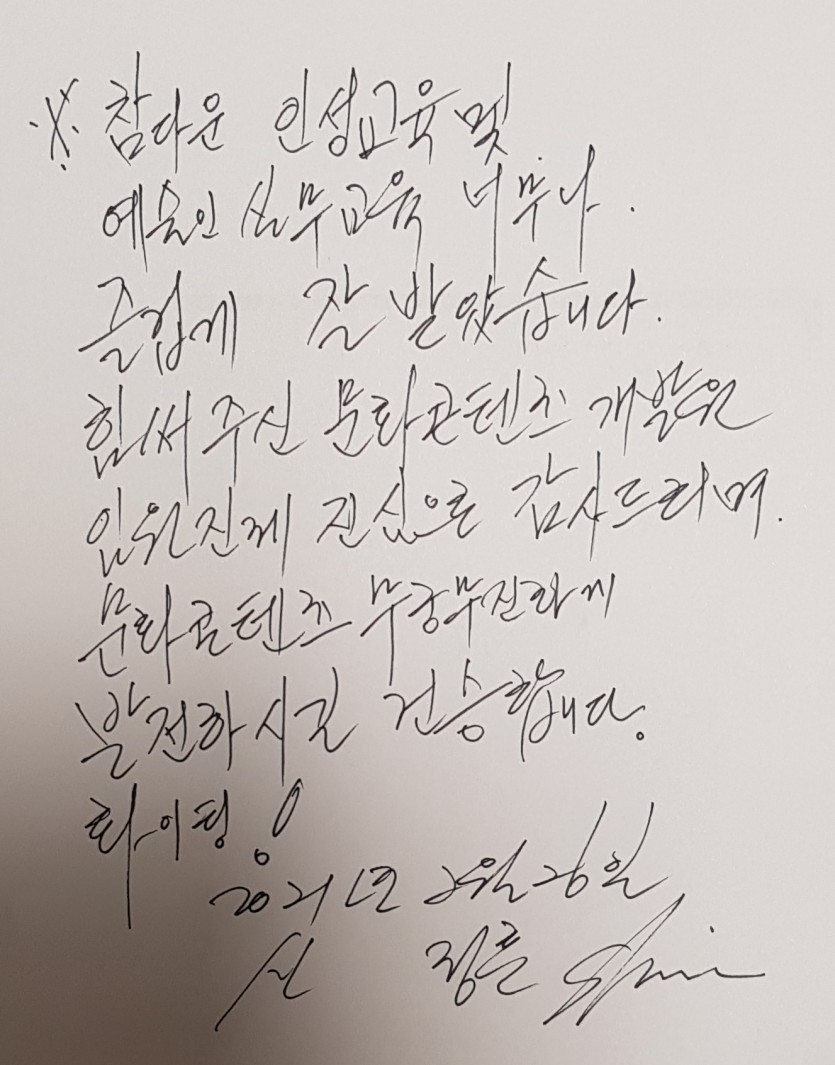 ※ 참다운 인성교육 및
예술인 실무교육 너무나.
즐겁게 잘 받았습니다.
힘써 주신 문화콘텐츠 개발원
임원진께 진심으로 감사드리며.
문화콘텐츠 무궁무진하게
발전하시길 건승합니다.
화이팅!
2021년 2월 26일
신